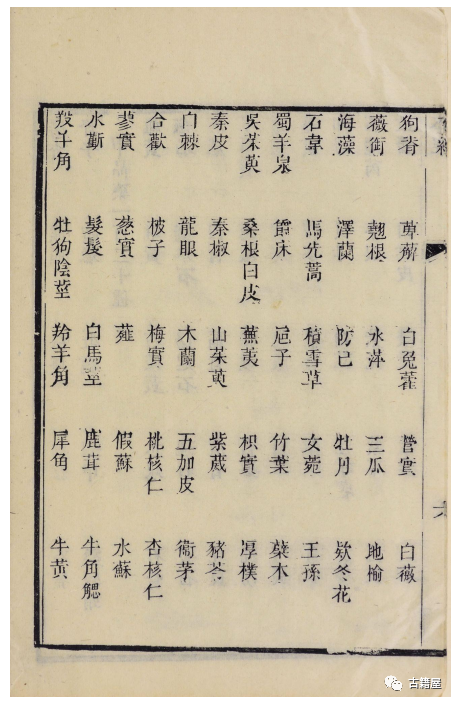 狗脊 萆薢 白兔藿 營實 白薇
薇銜 翹根 水萍 三瓜 地榆
海藻 澤蘭 防已 牡丹 欵冬花
石韋 馬先蒿 積雪草 女菀 王孫
蜀羊泉 爵床 巵子 竹葉 蘗木
吳茱萸 桑根白皮 蕪荑 枳實 厚樸
秦皮 秦椒 山茱萸 紫葳 豬苓
白棘 龍眼 木蘭 五加皮 衞茅
合歡 柀子 梅實 桃核仁 杏核仁
蓼實 葱實 薤 假蘇 水蘇
水靳 髮髲 白馬莖 鹿茸 牛角䚡
羖羊角 牡狗陰莖 羚羊角 犀角 牛黃
古籍屋